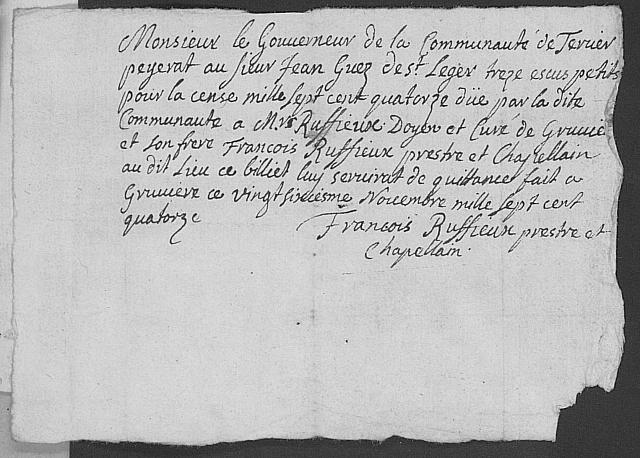 Monsieur le Gouuerneur de la Communauté de Teruer
peyerat au sieur Jean Guez de st. Leger treze escus petits
pour la cense mille sept cent quatorze düe par la dite
Communauté a Mrs Ruffieux Doyen et Curé de Gruuie
et son frere Francois Ruffieux prestre et Chapellain
au dit Lieu ce billiet luy seruirat de quittance fait a
Gruuiere ce vingt sixiesme Nouembre mille sept cent
quatorze
Francois Ruffieux prestre et
Chapellain.